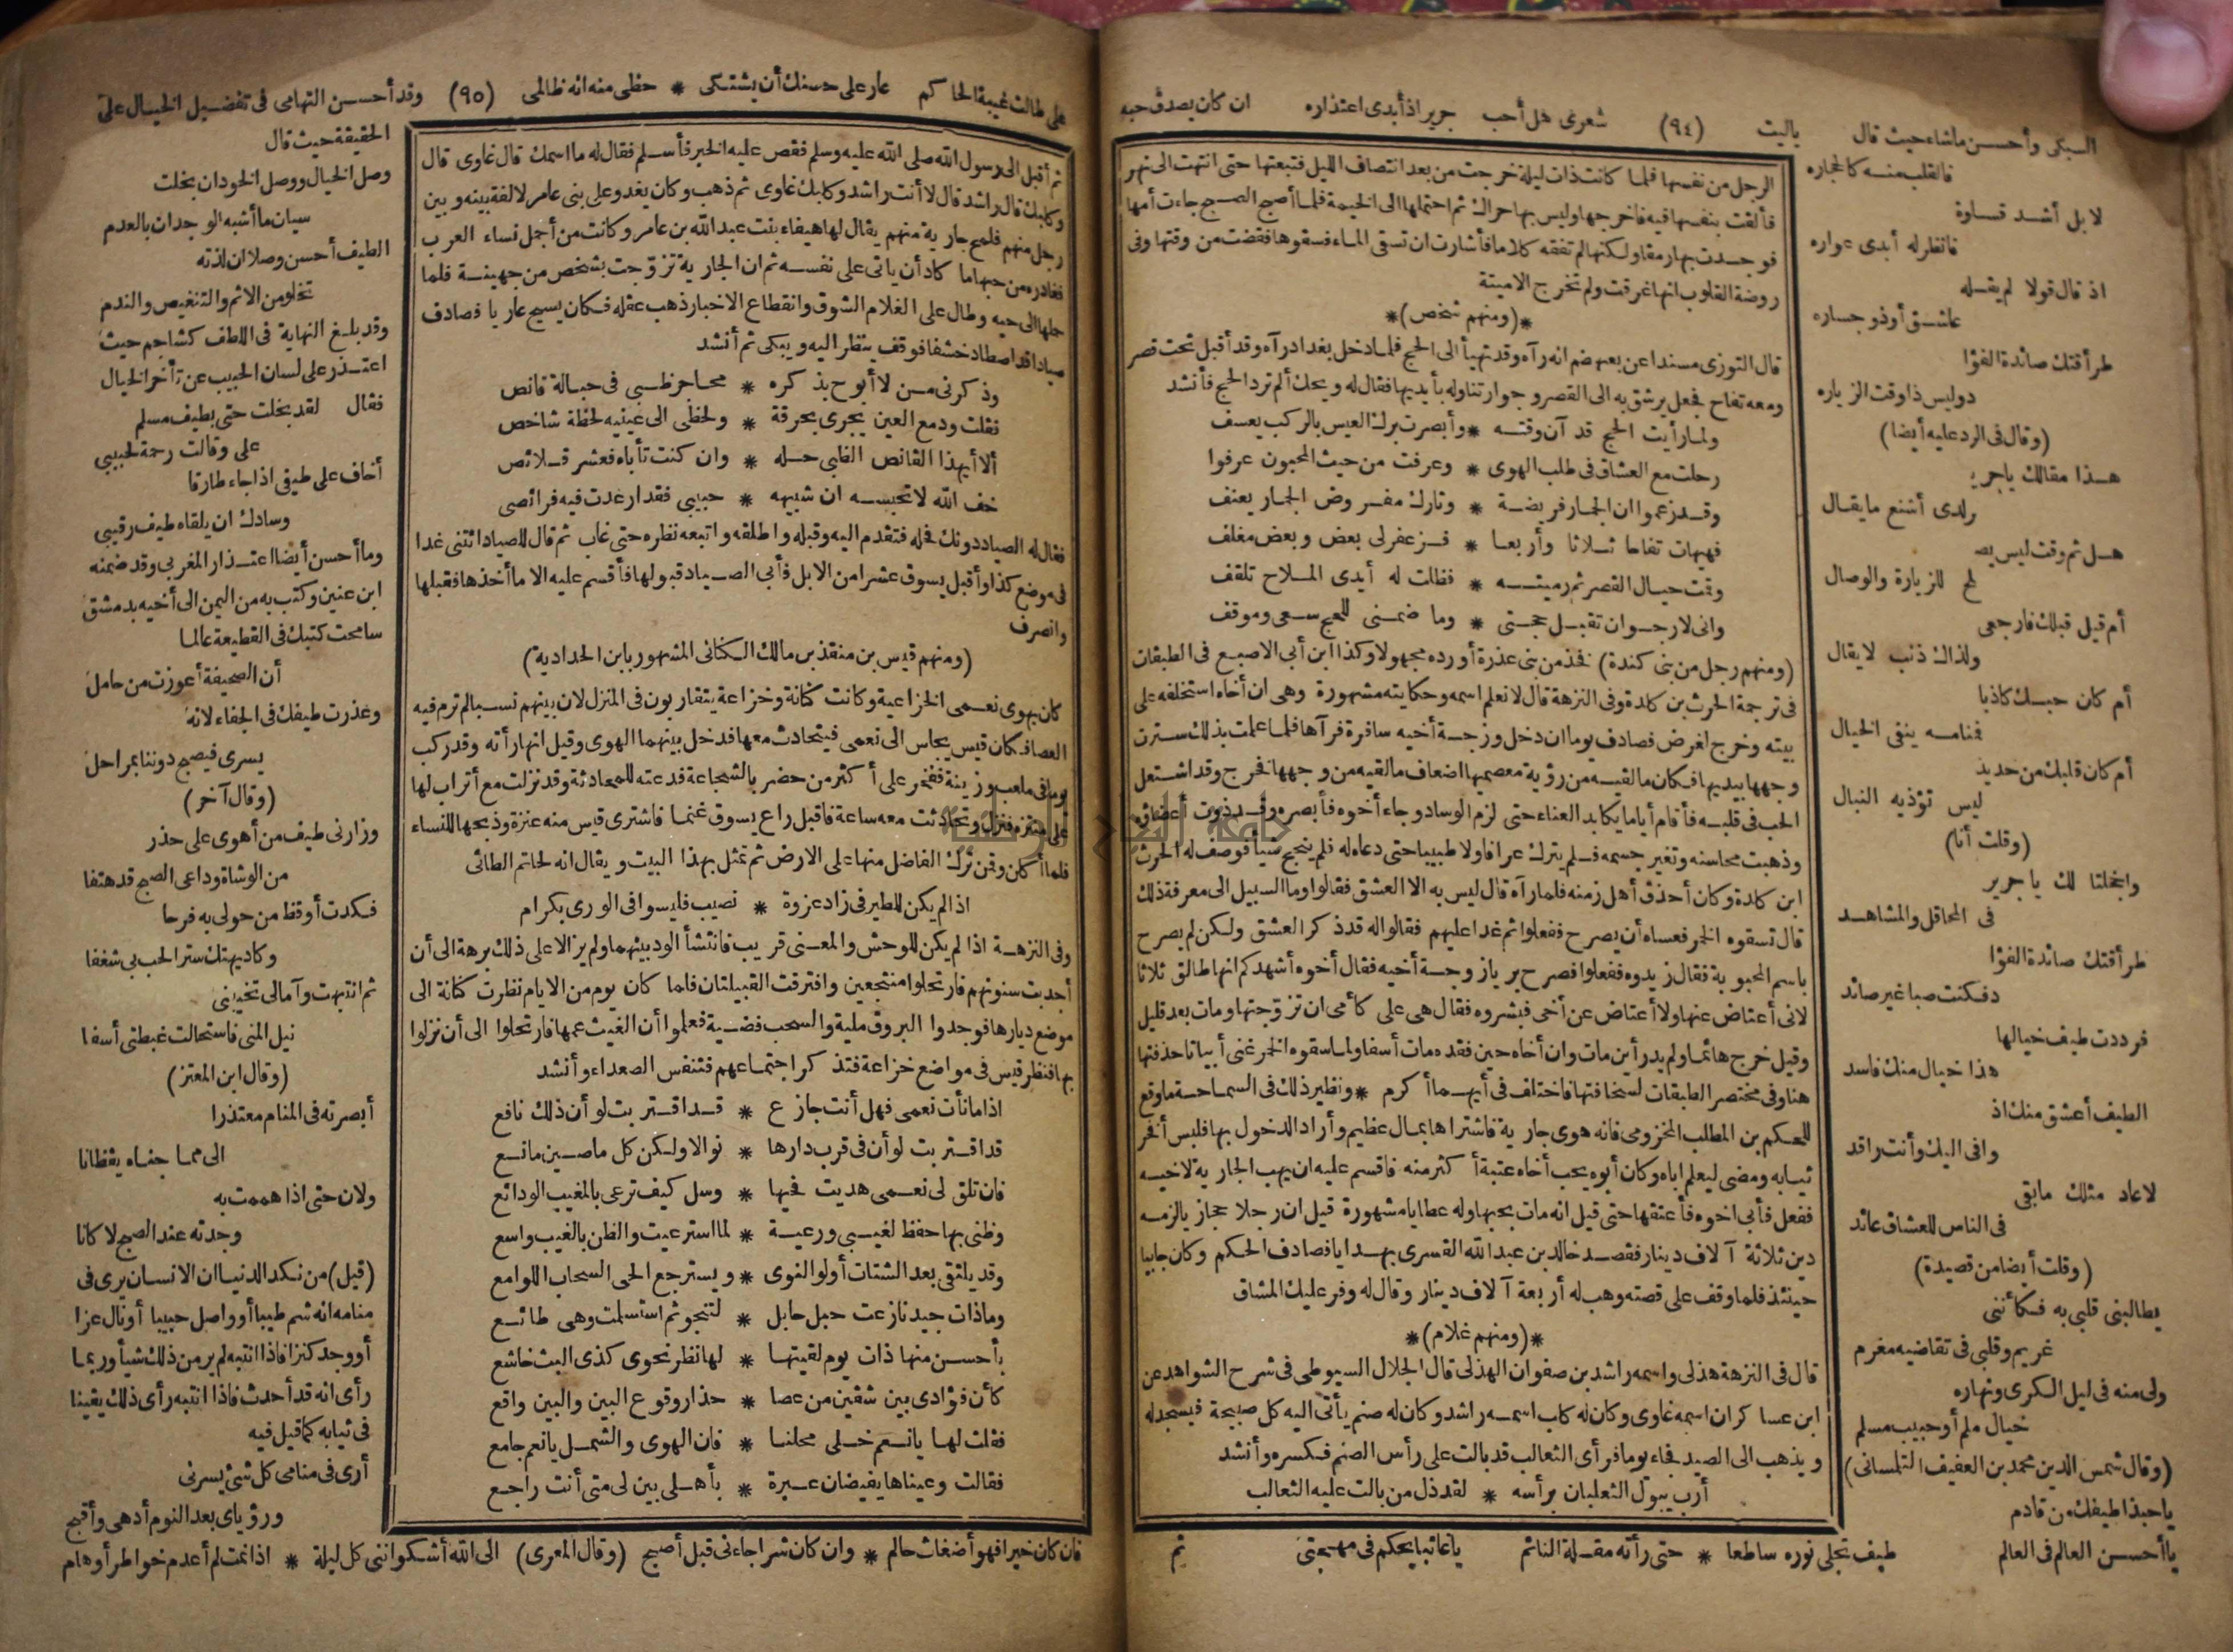 السبكى وأحسن ماشاء حيث قال ياليت (٩٤) شعرى هل أحب جرير اذ أبدى اعتذاره ان كان يصدق حبه
فالقلب منه كالحجاره
لا بل أشد قساوة
فانظر له أبدى عواره
اذ قال قولا لم يقله
عاشق أو ذو جساره
طرأقتك صائدة الفؤا
د وليس ذا وقت الزياره
(وقال فى الرد عليه أيضا)
هذا مقالك يا جرير
ولدى أشنع ما يقال
هل ثم وقت ليس يصـ
لح للزيارة والوصال
أم قيل قبلك فارجعى
ولذاك ذنب لا يقال
أم كان حبك كاذبا
فمنامه ينفى الخيال
أم كان قلبك من حديد
ليس تؤذيه النبال
(وقلت أنا)
واخجلتا لك يا جرير
فى المحافل والمشاهد
طرأقتك صائدة الفؤا
د فكنت صبا غير صائد
فرددت طيف خيالها
هذا خيال منك فاسد
الطيف أعشق منك اذ
وافى اليك وأنت راقد
لا عاد مثلك مابقى
فى الناس للعشاق عائد
(وقلت أيضا من قصيدة)
يطالبنى قلبى به فكأننى
غريم وقلبى فى تقاضيه مغرم
ولى منه فى ليل الكرى ونهاره
خيال ملم أو حبيب مسلم
(وقال شمس الدين محمد بن العفيف التلمسانى)
ياحبذا طيفك من قادم
يا أحسن العالم فى العالم
طيف تجلى نوره ساطعا * حتى رأته مقلة النائم يا غائبا يحكم فى مهجتى ثم
الرجل من نفسها فلما كانت ذات ليلة خرجت من بعد انتصاف الليل فتبعتها حتى انتهت الى نهر
فألقت بنفسها فيه فاخرجها وليس بها حراك ثم احتملها الى الخيمة فلما أصبح الصبح جاءت أمها
فوجدت بها رمقا ولكنها لم تفقه كلاما فأشارت ان تسقى الماء فسقوها فقضت من وقتها وفى
روضة القلوب انها غرقت ولم تخرج الا ميتة
*(ومنهم شخص)*
قال التوزى مسندا عن بعضهم انه رآه وقد تهيأ الى الحج فلما دخل بغداد رآه وقد أقبل تحت قصر
ومعه تفاح فجعل يرشق به الى القصر وجوار تتناوله بأيديها فقال له ويحك ألم ترد الحج فأنشد
ولما رأيت الحج قد آن وقته * وأبصرت برك العيس بالركب يعسف
رحلت مع العشاق فى طلب الهوى * وعرفت من حيث المحبون عرفوا
وقد زعموا ان الجمار فريضة * وتارك مفروض الجمار يعنف
فهيهات تفاحا ثلاثا وأربعا * فزعفر لى بعض وبعض مغلف
وقت حيال القصر ثم رميته * فظلت له أيدى الملاح تلقف
وانى لارجو ان تقبل حجتى * وما ضمنى للحج سعى وموقف
(ومنهم رجل من بنى كندة) فخذ من بنى عذرة أورده مجهولا وكذا ابن أبى الاصبع فى الطبقات
فى ترجمة الحرث بن كلدة وفى النزهة قال لانعلم اسمه وحكايته مشهورة وهى ان أخاه استخلفه على
بيته وخرج لغرض فصادف يوما ان دخل وزوجة أخيه سافرة فرآها فلما علمت بذلك سترت
وجهها بيديها فكان مالقيه من رؤية معصميها اضعاف مالقيه من وجهها فخرج وقد اشتعل
الحب فى قلبه فأقام أياما يكابد العناء حتى لزم الوساد وجاء أخوه فأبصره وقد ذوت أعضاؤه
وذهبت محاسنه وتغير جسمه فلم يترك عرافا ولا طبيبا حتى دعاه له فلم ينجح شيأ فوصف له الحرث
ابن كلدة وكان أحذق أهل زمنه فلما رآه قال ليس به الا العشق فقالوا وما السبيل الى معرفة ذلك
قال تسقوه الخمر فعساه أن يصرح ففعلوا ثم غدا عليهم فقالوا له قد ذكر العشق ولكن لم يصرح
باسم المحبوبة فقال زيدوه ففعلوا فصرح بريا زوجة أخيه فقال أخوه أشهدكم انها طالق ثلاثا
لانى أعتاض عنها ولا أعتاض عن أخى فبشروه فقال هى على كأمى ان تزوجتها ومات بعد قليل
وقيل خرج هائما ولم يدر أين مات وان أخاه حين فقده مات أسفا ولما سقوه الخمر غنى أبياتا حذفتها
هنا وفى مختصر الطبقات لسخافتها فاختلف فى أيهما أكرم * ونظير ذلك فى السماحة ما وقع
للحكم بن المطلب المخزومى فانه هوى جارية فاشتراها بمال عظيم وأراد الدخول بها فلبس أفخر
ثيابه ومضى ليعلم اباه وكان أبوه يحب أخاه عتبة أكثر منه فاقسم عليه ان يهب الجارية لاخيه
ففعل فأبى اخوه فأعتقها حتى قيل انه مات بحبها وله عطايا مشهورة قيل ان رجلا حجازيا لزمه
دين ثلاثة آلاف دينار فقصد خالد بن عبد الله القسرى بهدايا فصادف الحكم وكان جابيا
حينئذ فلما وقف على قصته وهب له أربعة آلاف دينار وقال له وفر عليك المشاق
*(ومنهم غلام)*
قال فى النزهة هذلى واسمه راشد بن صفوان الهذلى قال الجلال السيوطى فى شرح الشواهد عن
ابن عساكر ان اسمه غاوى وكان له كاب اسمه راشد وكان له صنم يأتى اليه كل صبيحة فيسجد له
ويذهب الى الصيد فجاء يوما فرأى الثعالب قد بالت على رأس الصنم فكسره وأنشد
أرب يبول الثعلبان برأسه * لقد ذل من بالت عليه الثعالب
على طالت غيبة الحاكم عار على حسنك أن يشتكى * حظى منه انه ظالمى (٩٥) وقد أحسن التهامى فى تفضيل الخيال على
ثم أقبل الى رسول الله صلى الله عليه وسلم فقص عليه الخبر فأسلم فقال له ما اسمك قال غاوى قال
وكابك قال راشد قال لا أنت راشد وكابك غاوى ثم ذهب وكان يغدو على بنى عامر لالفة بينه وبين
رجل منهم فلمح جارية منهم يقال لها هيفاء بنت عبد الله بن عامر وكانت من أجمل نساء العرب
فغادره من حبها ما كاد أن يأتى على نفسه ثم ان الجارية تزوجت بشخص من جهينة فلما
حلها الى حيه وطال على الغلام الشوق وانقطاع الاخبار ذهب عقله فكان يسيح عاريا فصادف
صيادا قد اصطاد خشفا فوقف ينظر اليه ويبكى ثم أنشد
وذكرنى من لا أبوح بذكره * محاجر ظبى فى حبالة قانص
فقلت ودمع العين يجرى بحرقة * ولحظى الى عينيه لحظة شاخص
ألا أيهذا القانص الظبى خله * وان كنت تأباه فعشر قلائص
خف الله لا تحبسه ان شبيهه * حبيبى فقد ارعدت فيه فرائصى
فقال له الصياد دونك فخله فتقدم اليه وقبله واطلقه واتبعه نظره حتى غاب ثم قال للصياد ائتنى غدا
فى موضع كذا وأقبل يسوق عشرا من الابل فأبى الصياد قبولها فأقسم عليه الا ما أخذها فقبلها
وانصرف
(ومنهم قيس بن منقذ بن مالك الكنانى المشهور بابن الحدادية)
كان يهوى نعمى الخزاعية وكانت كنانة وخزاعة يتقاربون فى المنزل لان بينهم نسبا لم ترم فيه
العصا فكان قيس يجلس الى نعمى فيتحادث معها فدخل بينهما الهوى وقيل انها رأته وقد ركب
يوما فى ملعب وزينة ففخر على أكثر من حضر بالشجاعة فدعته للمحادثة وقد نزلت مع أتراب لها
على منتزه فنزل وتحادثت معه ساعة فاقبل راع يسوق غنما فاشترى قيس منه عنزة وذبحها للنساء
فلما أكلن وقن ترك الفاضل منها على الارض ثم تمثل بهذا البيت ويقال انه لحاتم الطائى
اذا لم يكن للطير فى زاد عزوة * نصيب فليسوا فى الورى بكرام
وفى النزهة اذا لم يكن للوحش والمعنى قريب فانتشأ الود بينهما ولم يزالا على ذلك برهة الى أن
أجدبت سنونهم فارتحلوا منتجعين وافترقت القبيلتان فلما كان يوم من الايام نظرت كنانة الى
موضع ديارها فوجدوا البروق ملية والسحب فضية فعلموا أن الغيث عمها فارتحلوا الى أن نزلوا
بها فنظر قيس فى مواضع خزاعة فتذكر اجتماعهم فتنفس الصعداء وأنشد
اذا ما نأت نعمى فهل أنت جازع * قد اقتربت لو أن ذلك نافع
قد اقتربت لو أن فى قرب دارها * نوالا ولكن كل ما ضن مانع
فان تلق لى نعمى هديت فحيها * وسل كيف ترعى بالمغيب الودائع
وظنى بها حفظ لغيبى ورعية * لما استرعيت والظن بالغيب واسع
وقد يلتقى بعد الشتات أولو النوى * ويسترجع الحى السحاب اللوامع
وما ذات جيد نازعت حبل حابل * لتنجو ثم استسلمت وهى طائع
بأحسن منها ذات يوم لقيتها * لها نظر نحوى كذى البث خاشع
كأن فؤادى بين شقين من عصا * حذار وقوع البين والبين واقع
فقلت لها يانعم خلى محلنا * فان الهوى والشمل يانعم جامع
فقالت وعيناها يفيضان عبرة * بأهلى بين لى متى أنت راجع
الحقيقة حيث قال
وصل الخيال ووصل الخود ان بخلت
سيان ما أشبه الوجدان بالعدم
الطيف أحسن وصلا ان لذته
تخلو من الاثم والتنغيص والندم
وقد بلغ النهاية فى اللطف كشاجم حيث
اعتذر على لسان الحبيب عن تأخر الخيال
فقال لقد بخلت حتى بطيف مسلم
على وقالت رحمة لحبيبى
أخاف على طيفى اذا جاء طارقا
وسادك ان يلقاه طيف رقيبى
وما أحسن أيضا اعتذار المغربى وقد ضمنه
ابن عنين وكتب به من اليمن الى أخيه بدمشق
سامحت كتبك فى القطيعة عالما
أن الصحيفة أعوزت من حامل
وعذرت طيفك فى الجفاء لانه
يسرى فيصبح دوننا بمراحل
(وقال آخر)
وزارنى طيف من أهوى على حذر
من الوشاة وداعى الصبح قد هتفا
فكدت أوقظ من حولى به فرحا
وكاد يهتك ستر الحب بى شغفا
ثم انتبهت وآمالى تخيبنى
نيل المنى فاستحالت غبطتى أسفا
(وقال ابن المعتز)
أبصرته فى المنام معتذرا
الى مما جفاه يقظانا
ولان حتى اذا هممت به
وجدته عند الصبح لا كانا
(قيل) من نكد الدنيا ان الانسان يرى فى
منامه انه شم طيبا أو واصل حبيبا أو نال عزا
أو وجد كنزا فاذا انتبه لم ير من ذلك شيأ وربما
رأى انه قد أحدث فاذا انتبه رأى ذلك يقينا
فى ثيابه كما قيل فيه
أرى فى منامى كل شئ يسرنى
ورؤياى بعد النوم أدهى وأقبح
فان كان خيرا فهو أضغاث حالم * وان كان شرا جاءنى قبل أصبح (وقال المعرى) الى الله أشكو اننى كل ليلة * اذا نمت لم أعدم خواطر أوهام